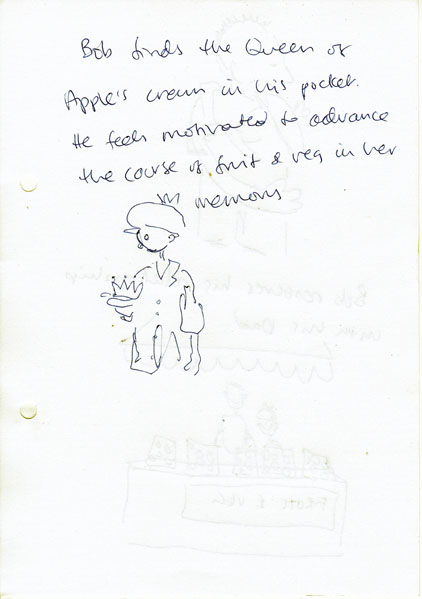 Bob finds the Queen of
Apple's crown in his pocket.
He feels motivated to advance
the course of fruit & veg in her
memory